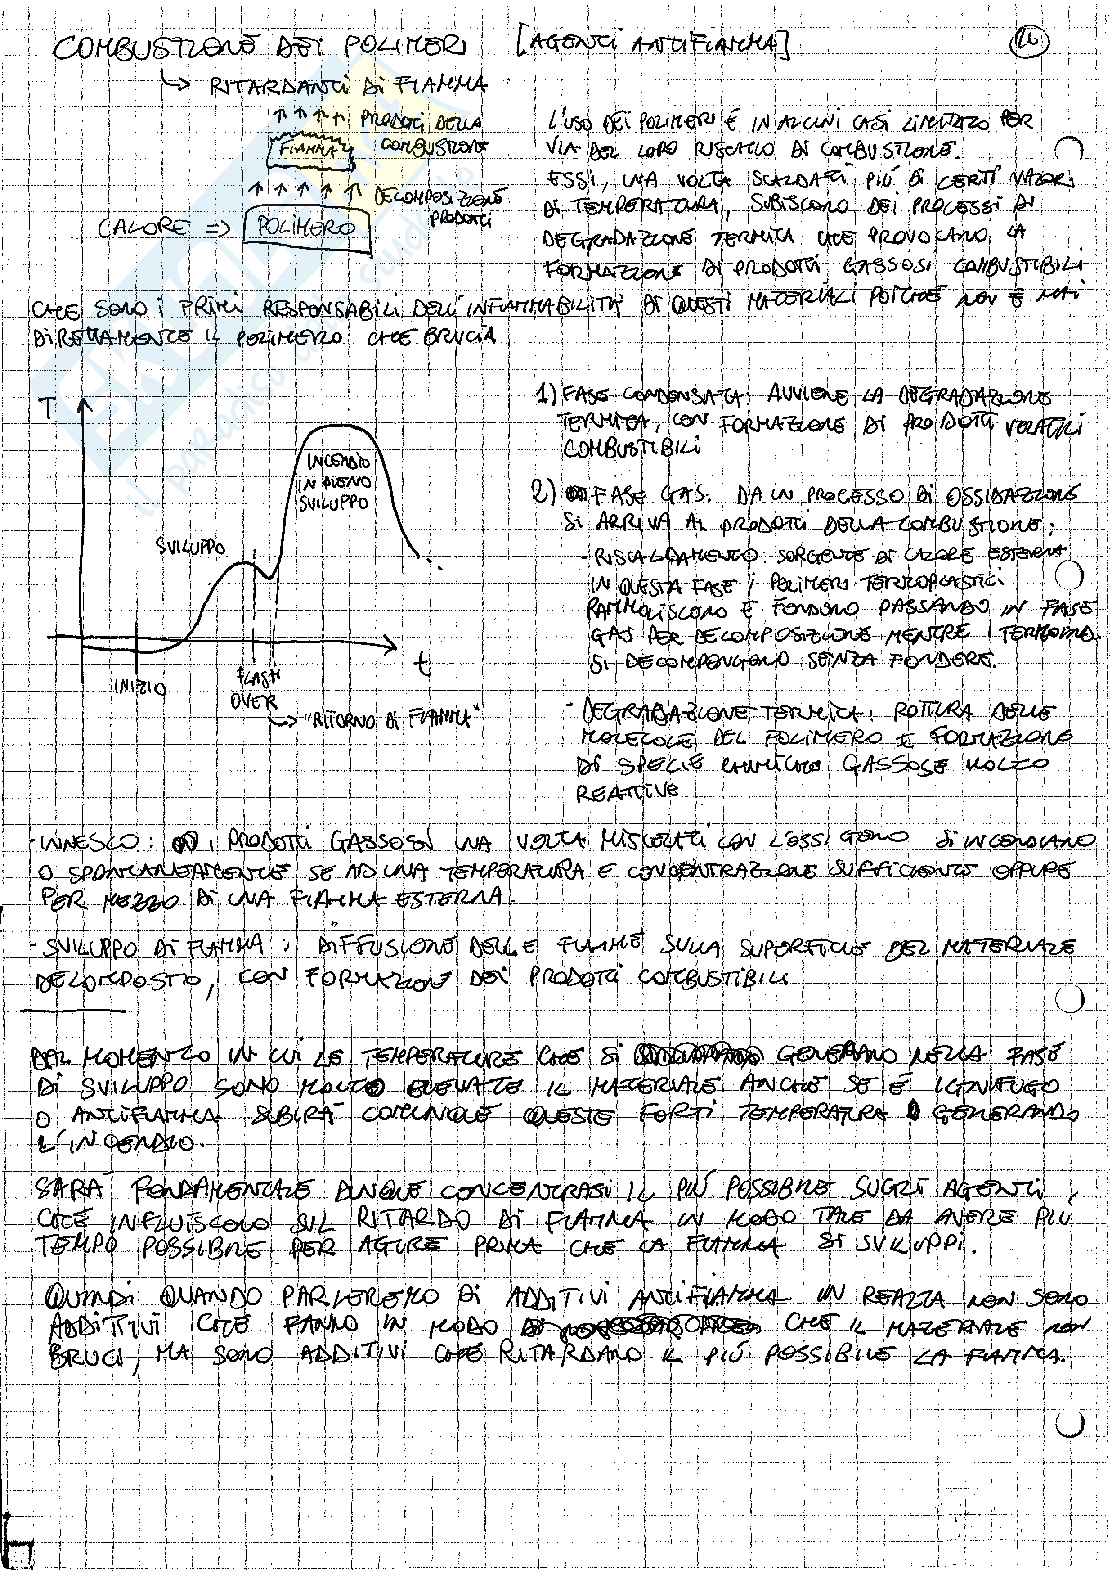 COMBUSTIONE DEI POLIMERI [AGENTI ANTIFIAMMA]
26
↳ RITARDANTI DI FIAMMA
↑ ↑ ↑ ↑ PRODOTTI DELLA
COMBUSTIONE
FIAMMA
↑ ↑ ↑ ↑ ↑ DECOMPOSIZIONE
PRODOTTI
CALORE => POLIMERO
L'USO DEI POLIMERI È IN ALCUNI CASI LIMITATO PER
VIA DEL LORO RISCHIO DI COMBUSTIONE.
ESSI, UNA VOLTA SCALDATI PIÙ DI CERTI VALORI
DI TEMPERATURA, SUBISCONO DEI PROCESSI DI
DEGRADAZIONE TERMICA CHE PROVOCANO LA
FORMAZIONE DI PRODOTTI GASSOSI COMBUSTIBILI
CHE SONO I PRIMI RESPONSABILI DELL'INFIAMMABILITÀ DI QUESTI MATERIALI POICHÉ NON È MAI
DIRETTAMENTE IL POLIMERO CHE BRUCIA
T
INCENDIO
IN PIENO
SVILUPPO
SVILUPPO
INIZIO
FLASH
OVER
t
↳ "RITORNO DI FIAMMA"
1) FASE CONDENSATA: AVVIENE LA DEGRADAZIONE
TERMICA, CON FORMAZIONE DI PRODOTTI VOLATILI
COMBUSTIBILI
2) FASE GAS. DA UN PROCESSO DI OSSIDAZIONE
SI ARRIVA AI PRODOTTI DELLA COMBUSTIONE:
- RISCALDAMENTO SORGENTE DI CALORE ESTERNA
IN QUESTA FASE I POLIMERI TERMOPLASTICI
RAMMOLISCONO E FONDONO PASSANDO IN FASE
GAS PER DECOMPOSIZIONE MENTRE I TERMOIND.
SI DECOMPONGONO SENZA FONDERE.
- DEGRADAZIONE TERMICA: ROTTURA DELLE
MOLECOLE DEL POLIMERO E FORMAZIONE
DI SPECIE CHIMICHE GASSOSE MOLTO
REATTIVE
- INNESCO: I PRODOTTI GASSOSI UNA VOLTA MISCELATI CON L'OSSIGENO SI INCENDIANO
O SPONTANEAMENTE SE AD UNA TEMPERATURA E CONCENTRAZIONE SUFFICIENTE OPPURE
PER MEZZO DI UNA FIAMMA ESTERNA.
- SVILUPPO DI FIAMMA: DIFFUSIONE DELLE FIAMME SULLA SUPERFICIE DEL MATERIALE
DECOMPOSTO, CON FORMAZIONE DEI PRODOTTI COMBUSTIBILI
DAL MOMENTO IN CUI LE TEMPERATURE CHE SI GENERANO NELLA FASE
DI SVILUPPO SONO MOLTO ELEVATE IL MATERIALE ANCHE SE È IGNIFUGO
O ANTIFIAMMA SUBIRÀ COMUNQUE QUESTE FORTI TEMPERATURA GENERANDO
L'INCENDIO.
SARÀ FONDAMENTALE DUNQUE CONCENTRASI IL PIÙ POSSIBILE SUGLI AGENTI
CHE INFLUISCOLO SUL RITARDO DI FIAMMA IN MODO TALE DA AVERE PIÙ
TEMPO POSSIBILE PER AGIRE PRIMA CHE LA FIAMMA SI SVILUPPI.
QUINDI QUANDO PARLEREMO DI ADDITIVI ANTIFIAMMA IN REALTÀ NON SONO
ADDITIVI CHE FANNO IN MODO CHE IL MATERIALE NON
BRUCI, MA SONO ADDITIVI CHE RITARDANO IL PIÙ POSSIBILE LA FIAMMA.